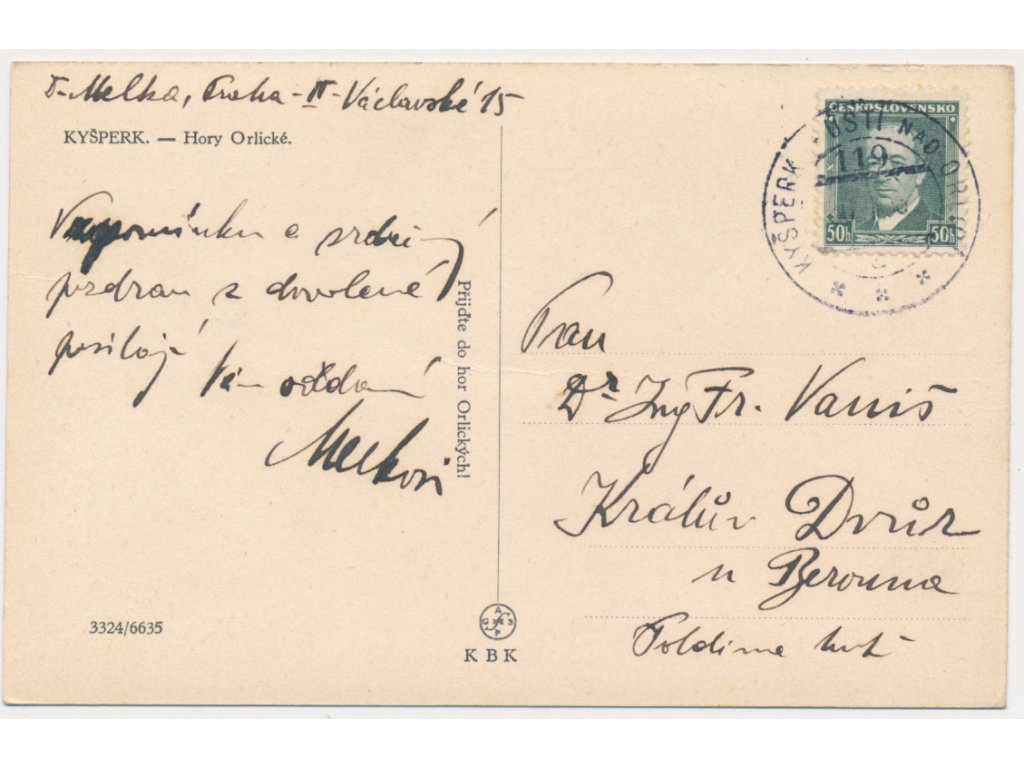 Dr Melka, Praha-II-Václavské 15
KYŠPERK. — Hory Orlické.
Vzpomínku a srdeč-
pozdrav z dovolené
posílají
Vám oddaní
Melkovi
Přijďte do hor Orlických!
3324/6635
KBK
ČESKOSLOVENSKO
50h 50h
KYŠPERK ÚSTÍ NAD ORLICÍ
119
Pan
Dr Ing Fr. Vaniš
Králův Dvůr
u Berouna
Poldina huť